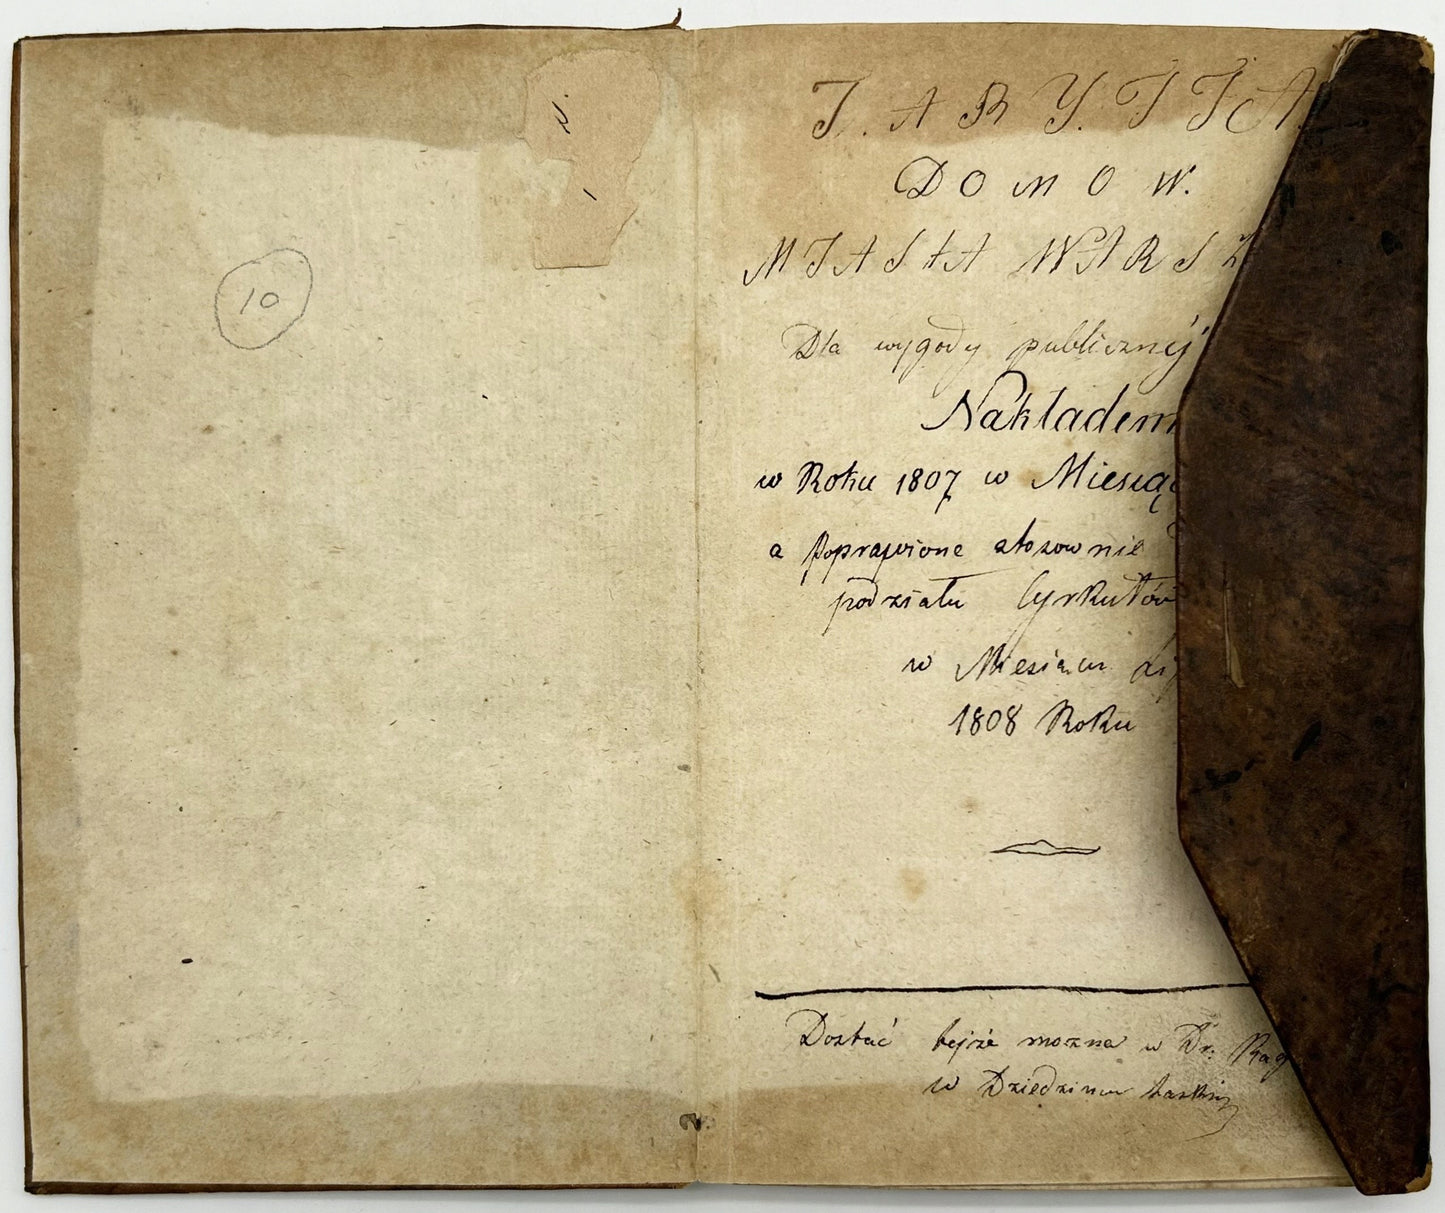 10
TARYFFA
DOMOW.
MIASTA WARSZ
Dla wygody publicznéj
Nakładem
w Roku 1807 w Miesiąc
a poprawione stosownie
podziału Cyrkułów
w Miesiącu Lip
1808 Roku
Dostać tejże można w Dr: Rag
w Dziedzincu
2